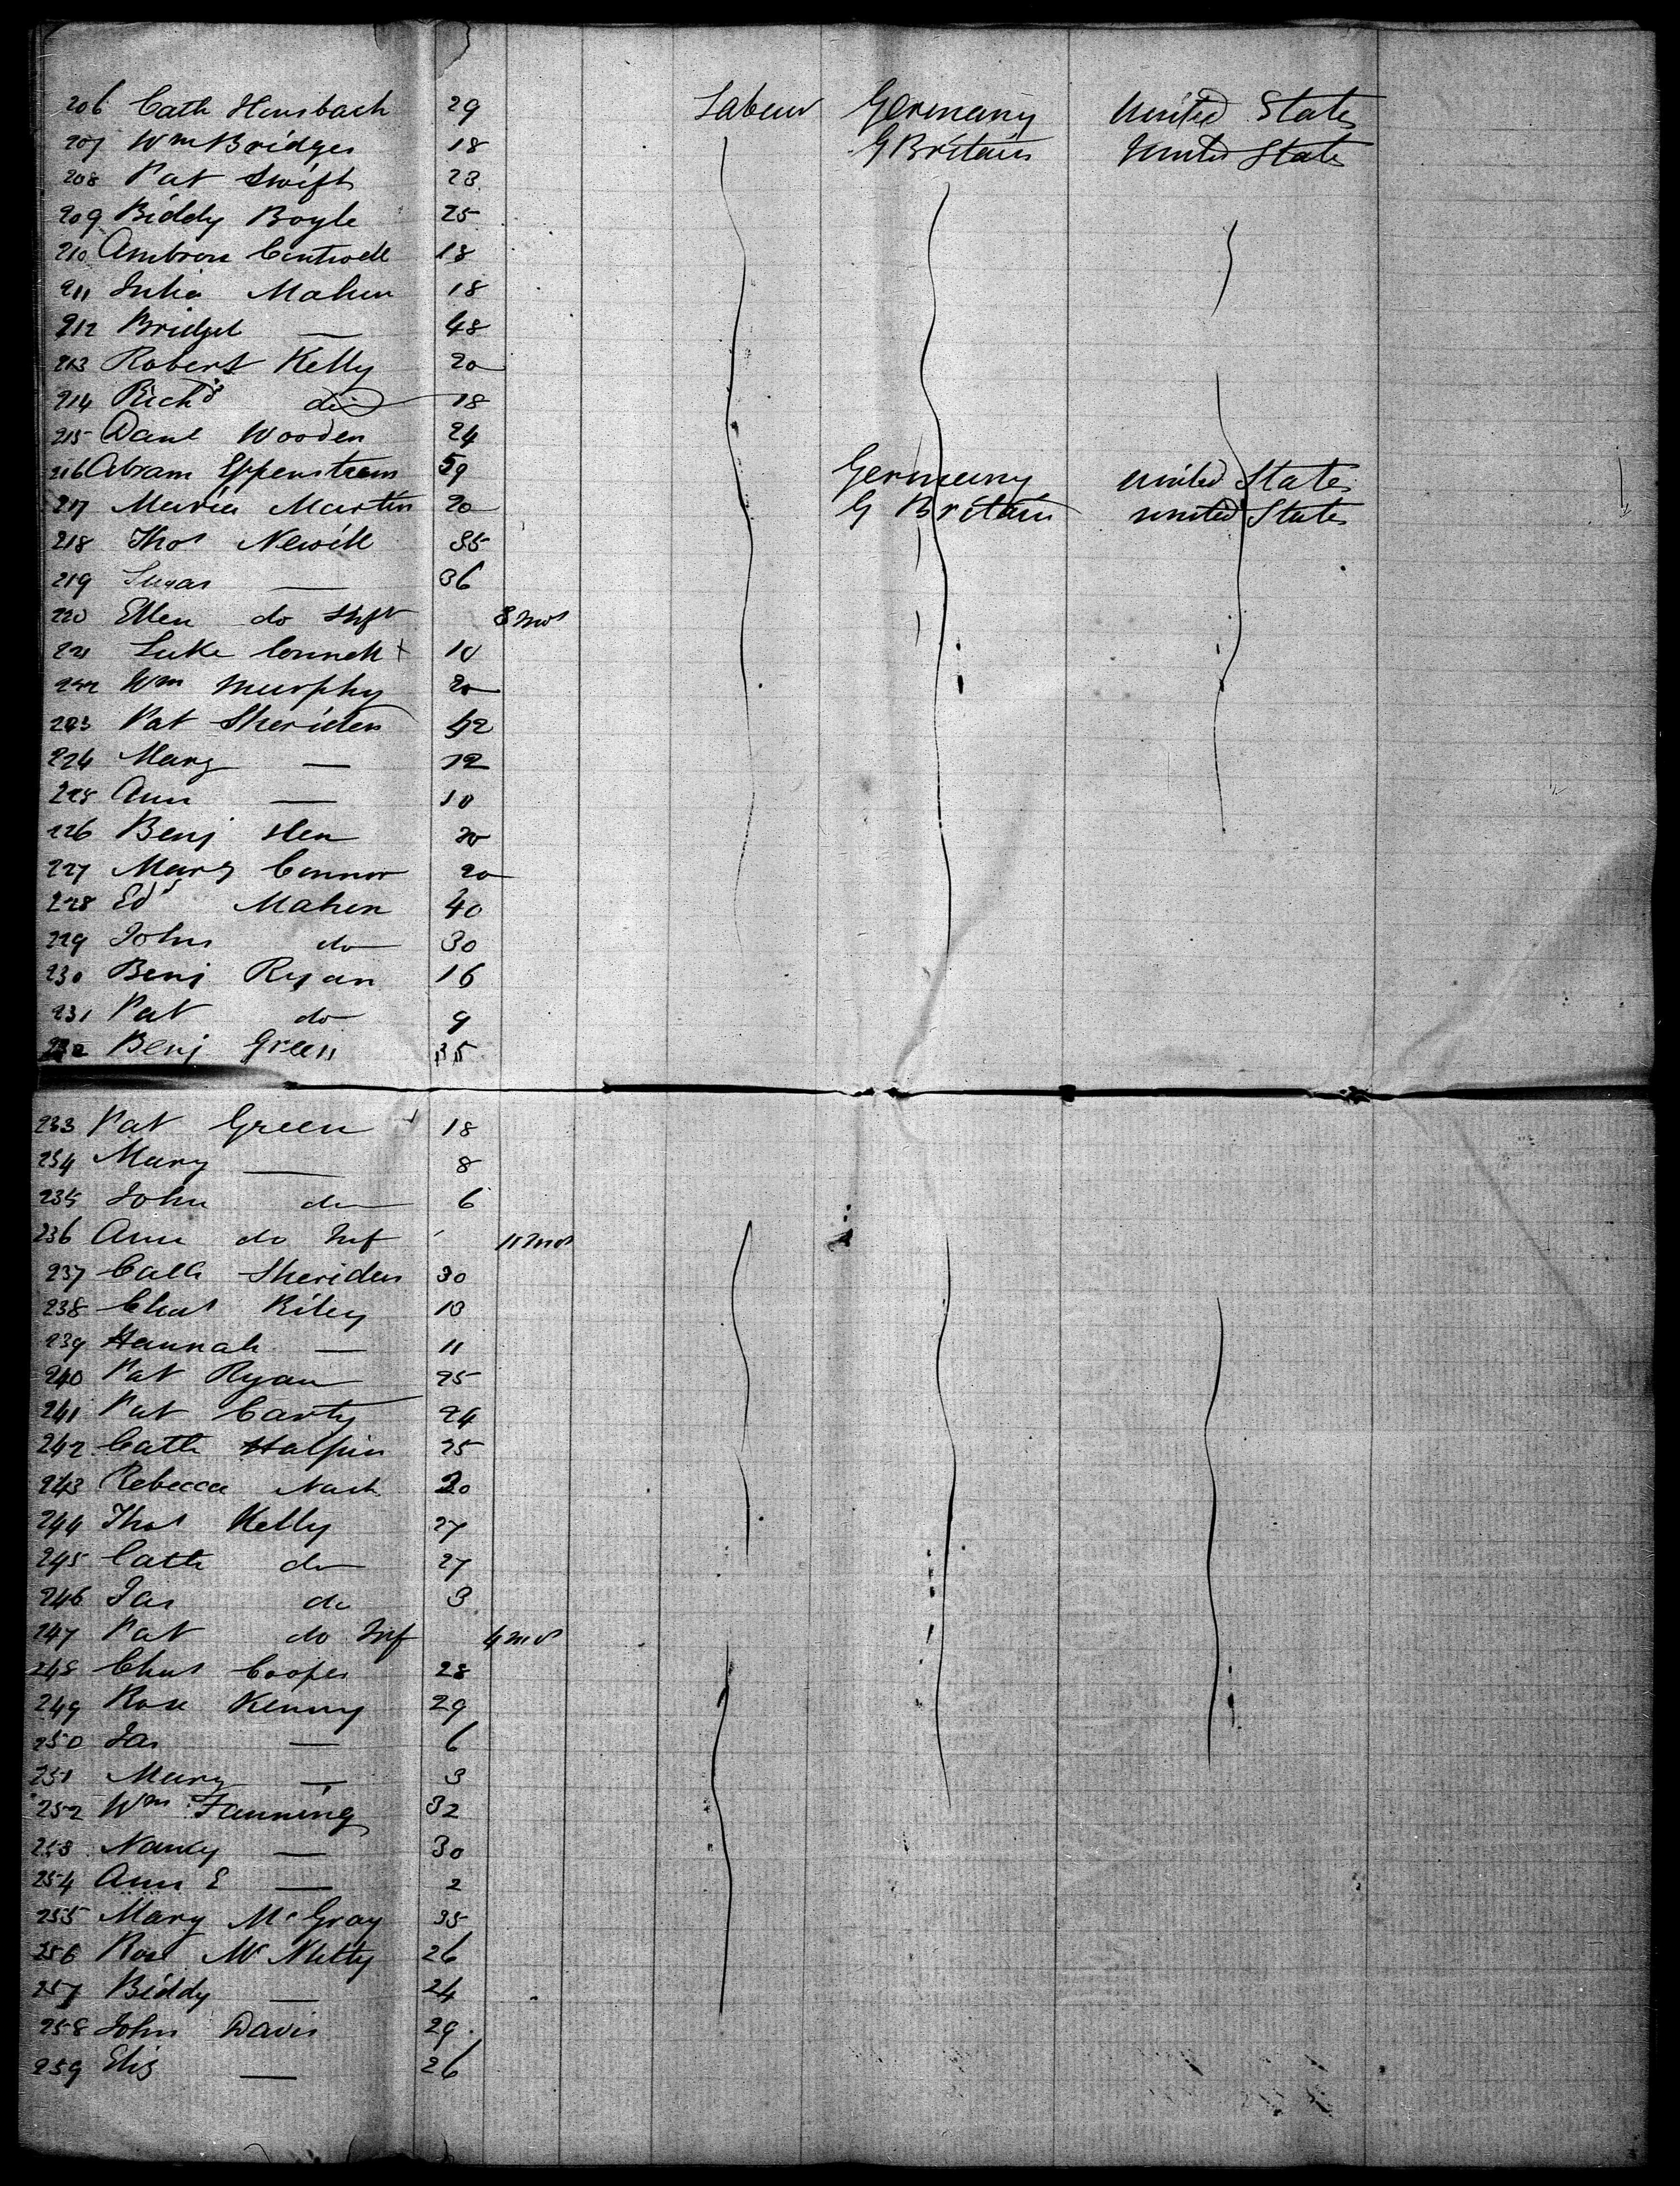 206 Cath Hensbach 29 Labour Germany United States
207 Wm Bridges 18 G Britain United States
208 Pat Swift 23
209 Biddy Boyle 25
210 Ambrose Cantwell 18
211 Julia Maher 18
212 Bridget — 48
213 Robert Kelly 20
214 Richd do 18
215 Danl Wooden 24
216 Abram 59 Germany United States
217 Maria Martin 20 G Britain United States
218 Thos Newill 35
219 Susan — 36
220 Ellen do Inft 8 mos
221 Luke Connell + 10
222 Wm Murphy 20
223 Pat Sheriden 42
224 Mary — 12
225 Ann — 10
226 Benj 20
227 Mary Connor 20
228 Edd Maher 40
229 John do 30
230 Benj Ryan 16
231 Pat do 9
232 Benj Green 35
233 Pat Green 18
234 Mary — 8
235 John do 6
236 Ann do Inf 11 mos
237 Cath Sheriden 30
238 Chas Riley 13
239 Hannah — 11
240 Pat Ryan 25
241 Pat Carty 24
242 Cath Halpin 25
243 Rebecca Nash 30
244 Thos Kelly 27
245 Cath do 27
246 Jas do 3
247 Pat do Inf 4 mos
248 Chas Cooper 28
249 Rose Kenny 29
250 Jas — 6
251 Mary — 3
252 Wm Fanning 32
253 Nancy — 30
254 Ann E — 2
255 Mary McGray 35
256 Rose McNulty 26
257 Biddy — 24
258 John Davis 29
259 Elis — 26